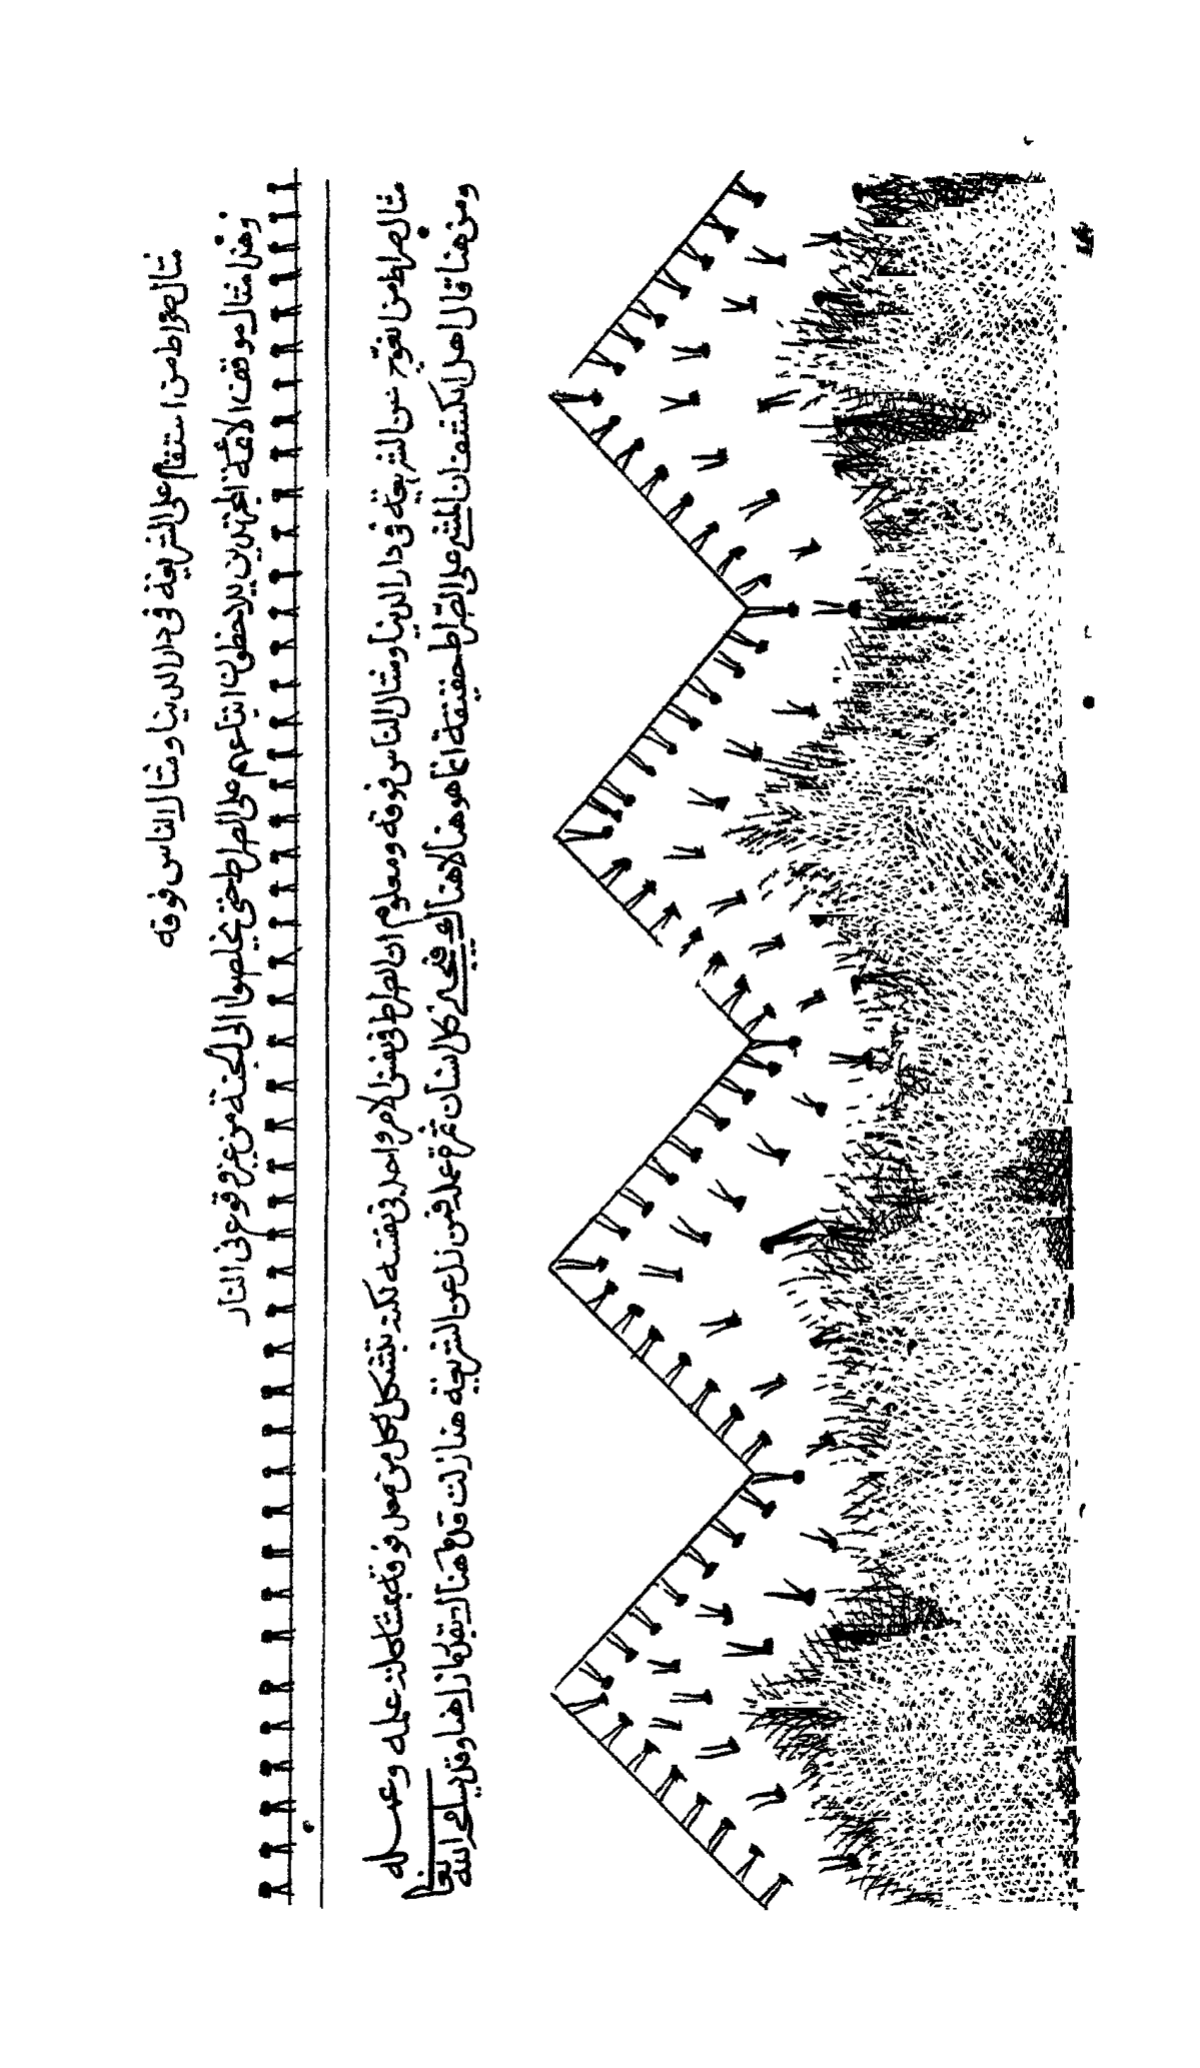 مثال صراط من استقام على الشريعة في دار الدنيا ومثال الناس فوقه
وهذا مثال موقف الائمة المجتهدين يلاحظون اتباعهم على الصراط حتى يخلصوا الى الجنة من غير وقوع في النار
مثال صراط من اعوج عن الشريعة في دار الدنيا ومثال الناس فوقه ومعلوم ان الصراط في نفس الامر واحد في نفسه لكنه يتشكل لكل من فعل فوقه بمشاكلة عمله وعمله
ومن هنا قال اهل الكشف ان المشي على الصراط حقيقة انما هو هنا لا هناك فيجني كل انسان ثمرة عمله فمن زل عن الشريعة هنا زلت قدمه هناك بقدر ما زل هنا وقد يسامح الله تعالى